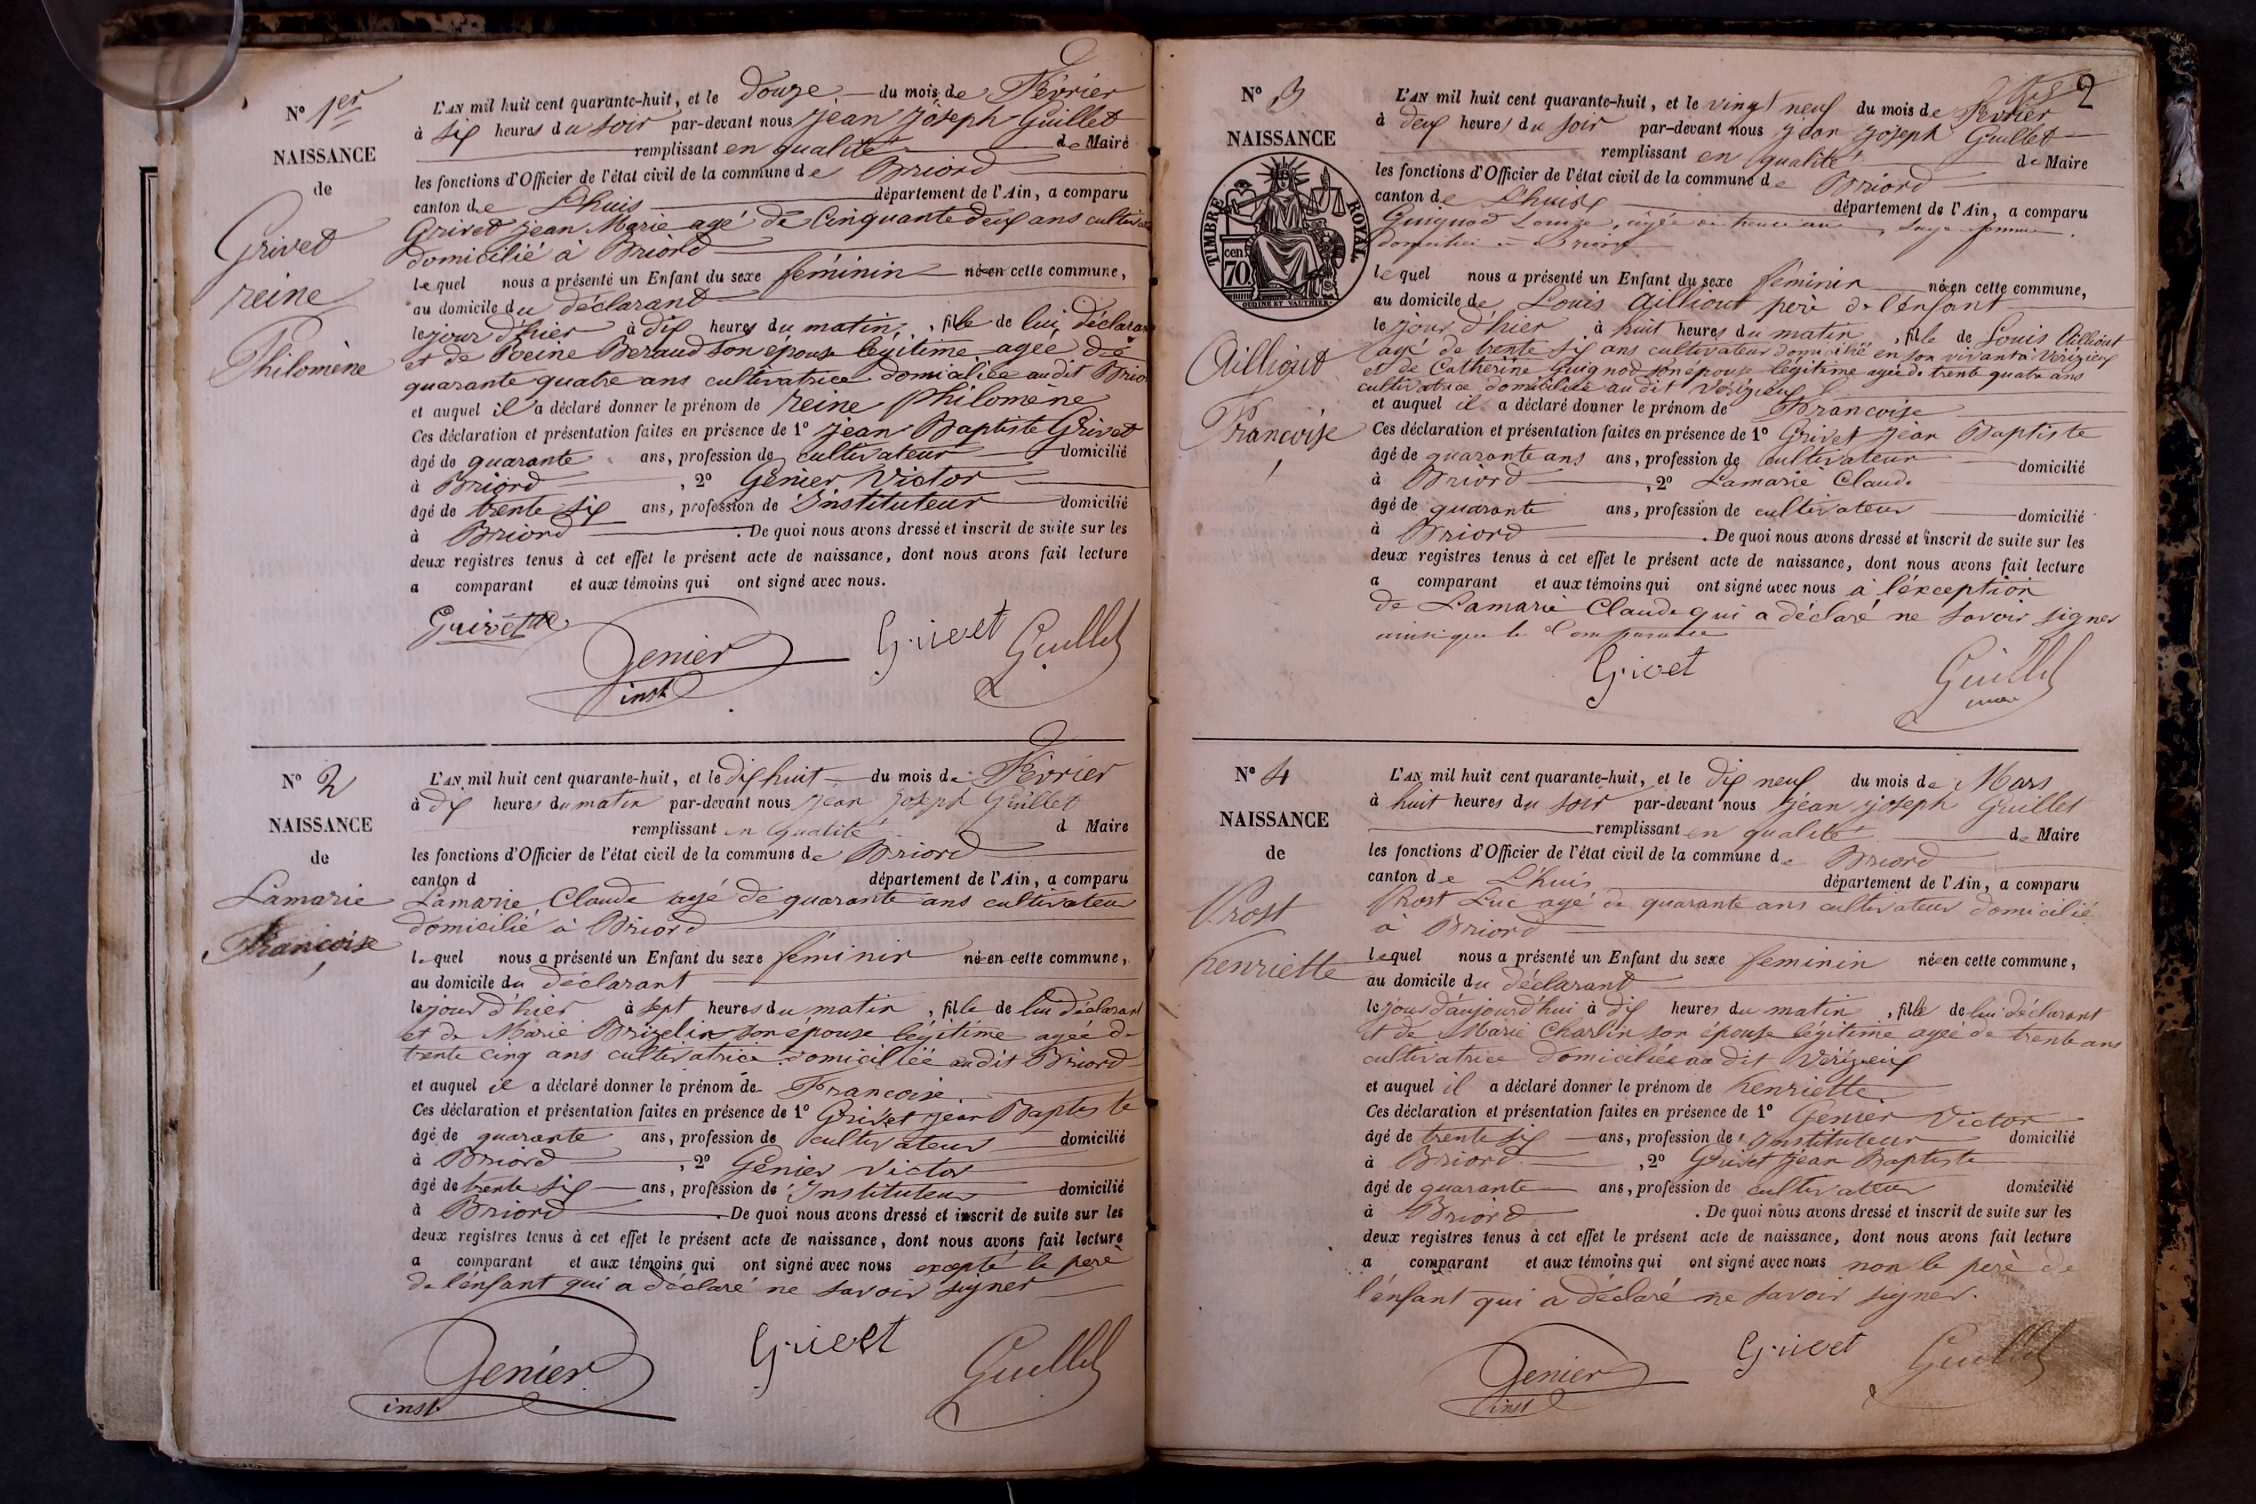 N° 1er
NAISSANCE
de
Grivet
reine
Philomène
L'AN mil huit cent quarante-huit, et le douze du mois de Février
à six heures du soir par-devant nous jean joseph Guillet
remplissant en qualité de Maire
les fonctions d'Officier de l'état civil de la commune de Briord
canton de Lhuis département de l'Ain, a comparu
Grivet jean Marie agé de Cinquante deux ans cultivat
domicilié à Briord
lequel nous a présenté un Enfant du sexe féminin né en cette commune,
au domicile du déclarant
le jour d'hier à dix heures du matin, fille de lui déclarant
et de Reine Beraud son épouse légitime agée de
quarante quatre ans cultivatrice domiciliée audit Brio
et auquel il a déclaré donner le prénom de reine philomène
Ces déclaration et présentation faites en présence de 1° jean Baptiste Grivet
âgé de quarante ans, profession de cultivateur domicilié
à Briord, 2° Génier Victor
âgé de trente six ans, profession de Instituteur domicilié
à Briord. De quoi nous avons dressé et inscrit de suite sur les
deux registres tenus à cet effet le présent acte de naissance, dont nous avons fait lecture
a comparant et aux témoins qui ont signé avec nous.
Genier Grivet Guillet
inst
N° 2
NAISSANCE
de
Lamarie
Francoise
L'AN mil huit cent quarante-huit, et le dix huit du mois de Février
à dix heures du matin par-devant nous jean joseph Guillet
remplissant en qualité d Maire
les fonctions d'Officier de l'état civil de la commune de Briord
canton d département de l'Ain, a comparu
Lamarie Claude agé de quarante ans cultivateur
domicilié à Briord
lequel nous a présenté un Enfant du sexe féminin né en cette commune,
au domicile du déclarant
le jour d'hier à sept heures du matin, fille de lui déclarant
et de Marie Brizelin son épouse légitime agée de
trente cinq ans cultivatrice domiciliée audit Briord
et auquel il a déclaré donner le prénom de Francoise
Ces déclaration et présentation faites en présence de 1° Grivet jean Baptiste
âgé de quarante ans, profession de cultivateur domicilié
à Briord, 2° Génier Victor
âgé de trente six ans, profession de Instituteur domicilié
à Briord. De quoi nous avons dressé et inscrit de suite sur les
deux registres tenus à cet effet le présent acte de naissance, dont nous avons fait lecture
a comparant et aux témoins qui ont signé avec nous excepté le père
de l'énfant qui a déclaré ne savoir signer
Genier Grivet Guillet
inst.
2
N° 3
NAISSANCE
TIMBRE ROYAL.
cen. 70.
OUDINÉ ET VAUTHIER.
Ailliout
Francoise
L'AN mil huit cent quarante-huit, et le vingt neuf du mois de Février
à deux heures du soir par-devant nous jean joseph Guillet
remplissant en qualité de Maire
les fonctions d'Officier de l'état civil de la commune de Briord
canton de Lhuis département de l'Ain, a comparu
Guignod Louise, agée de trente ans, sage femme,
domiciliée à Briord
lequel nous a présenté un Enfant du sexe féminin né en cette commune,
au domicile de Louis Ailliout père de l'énfant
le jour d'hier à huit heures du matin, fille de Louis Ailliout
agé de trente six ans cultivateur domicilié en son vivant à Vérizieux
et de Catherine Guignod son épouse légitime agée de trente quatre ans
cultivatrice domiciliée audit Vérizieux
et auquel il a déclaré donner le prénom de Francoise
Ces déclaration et présentation faites en présence de 1° Grivet jean Baptiste
âgé de quarante ans ans, profession de cultivateur domicilié
à Briord, 2° Lamarie Claude
âgé de quarante ans, profession de cultivateur domicilié
à Briord. De quoi nous avons dressé et inscrit de suite sur les
deux registres tenus à cet effet le présent acte de naissance, dont nous avons fait lecture
a comparant et aux témoins qui ont signé avec nous à l'éxception
de Lamarie Claude qui a déclaré ne savoir signer
ainsi que la Comparante
Grivet Guillet
maire
N° 4
NAISSANCE
de
Prost
henriette
L'AN mil huit cent quarante-huit, et le dix neuf du mois de Mars
à huit heures du soir par-devant nous jean joseph Guillet
remplissant en qualité de Maire
les fonctions d'Officier de l'état civil de la commune de Briord
canton de L'huis département de l'Ain, a comparu
Prost Luc agé de quarante ans cultivateur domicilié
à Briord
lequel nous a présenté un Enfant du sexe féminin né en cette commune,
au domicile du déclarant
le jour d'aujourd'hui à dix heures du matin, fille de lui déclarant
et de Marie Charlin son épouse légitime agée de trente ans
cultivatrice domiciliée au dit Vérizieux
et auquel il a déclaré donner le prénom de henriette
Ces déclaration et présentation faites en présence de 1° Genier Victor
âgé de trente six ans, profession de Instituteur domicilié
à Briord, 2° Grivet jean Baptiste
âgé de quarante ans, profession de cultivateur domicilié
à Briord. De quoi nous avons dressé et inscrit de suite sur les
deux registres tenus à cet effet le présent acte de naissance, dont nous avons fait lecture
a comparant et aux témoins qui ont signé avec nous non le père de
l'énfant qui a déclaré ne savoir signer.
Genier Grivet Guillet
inst